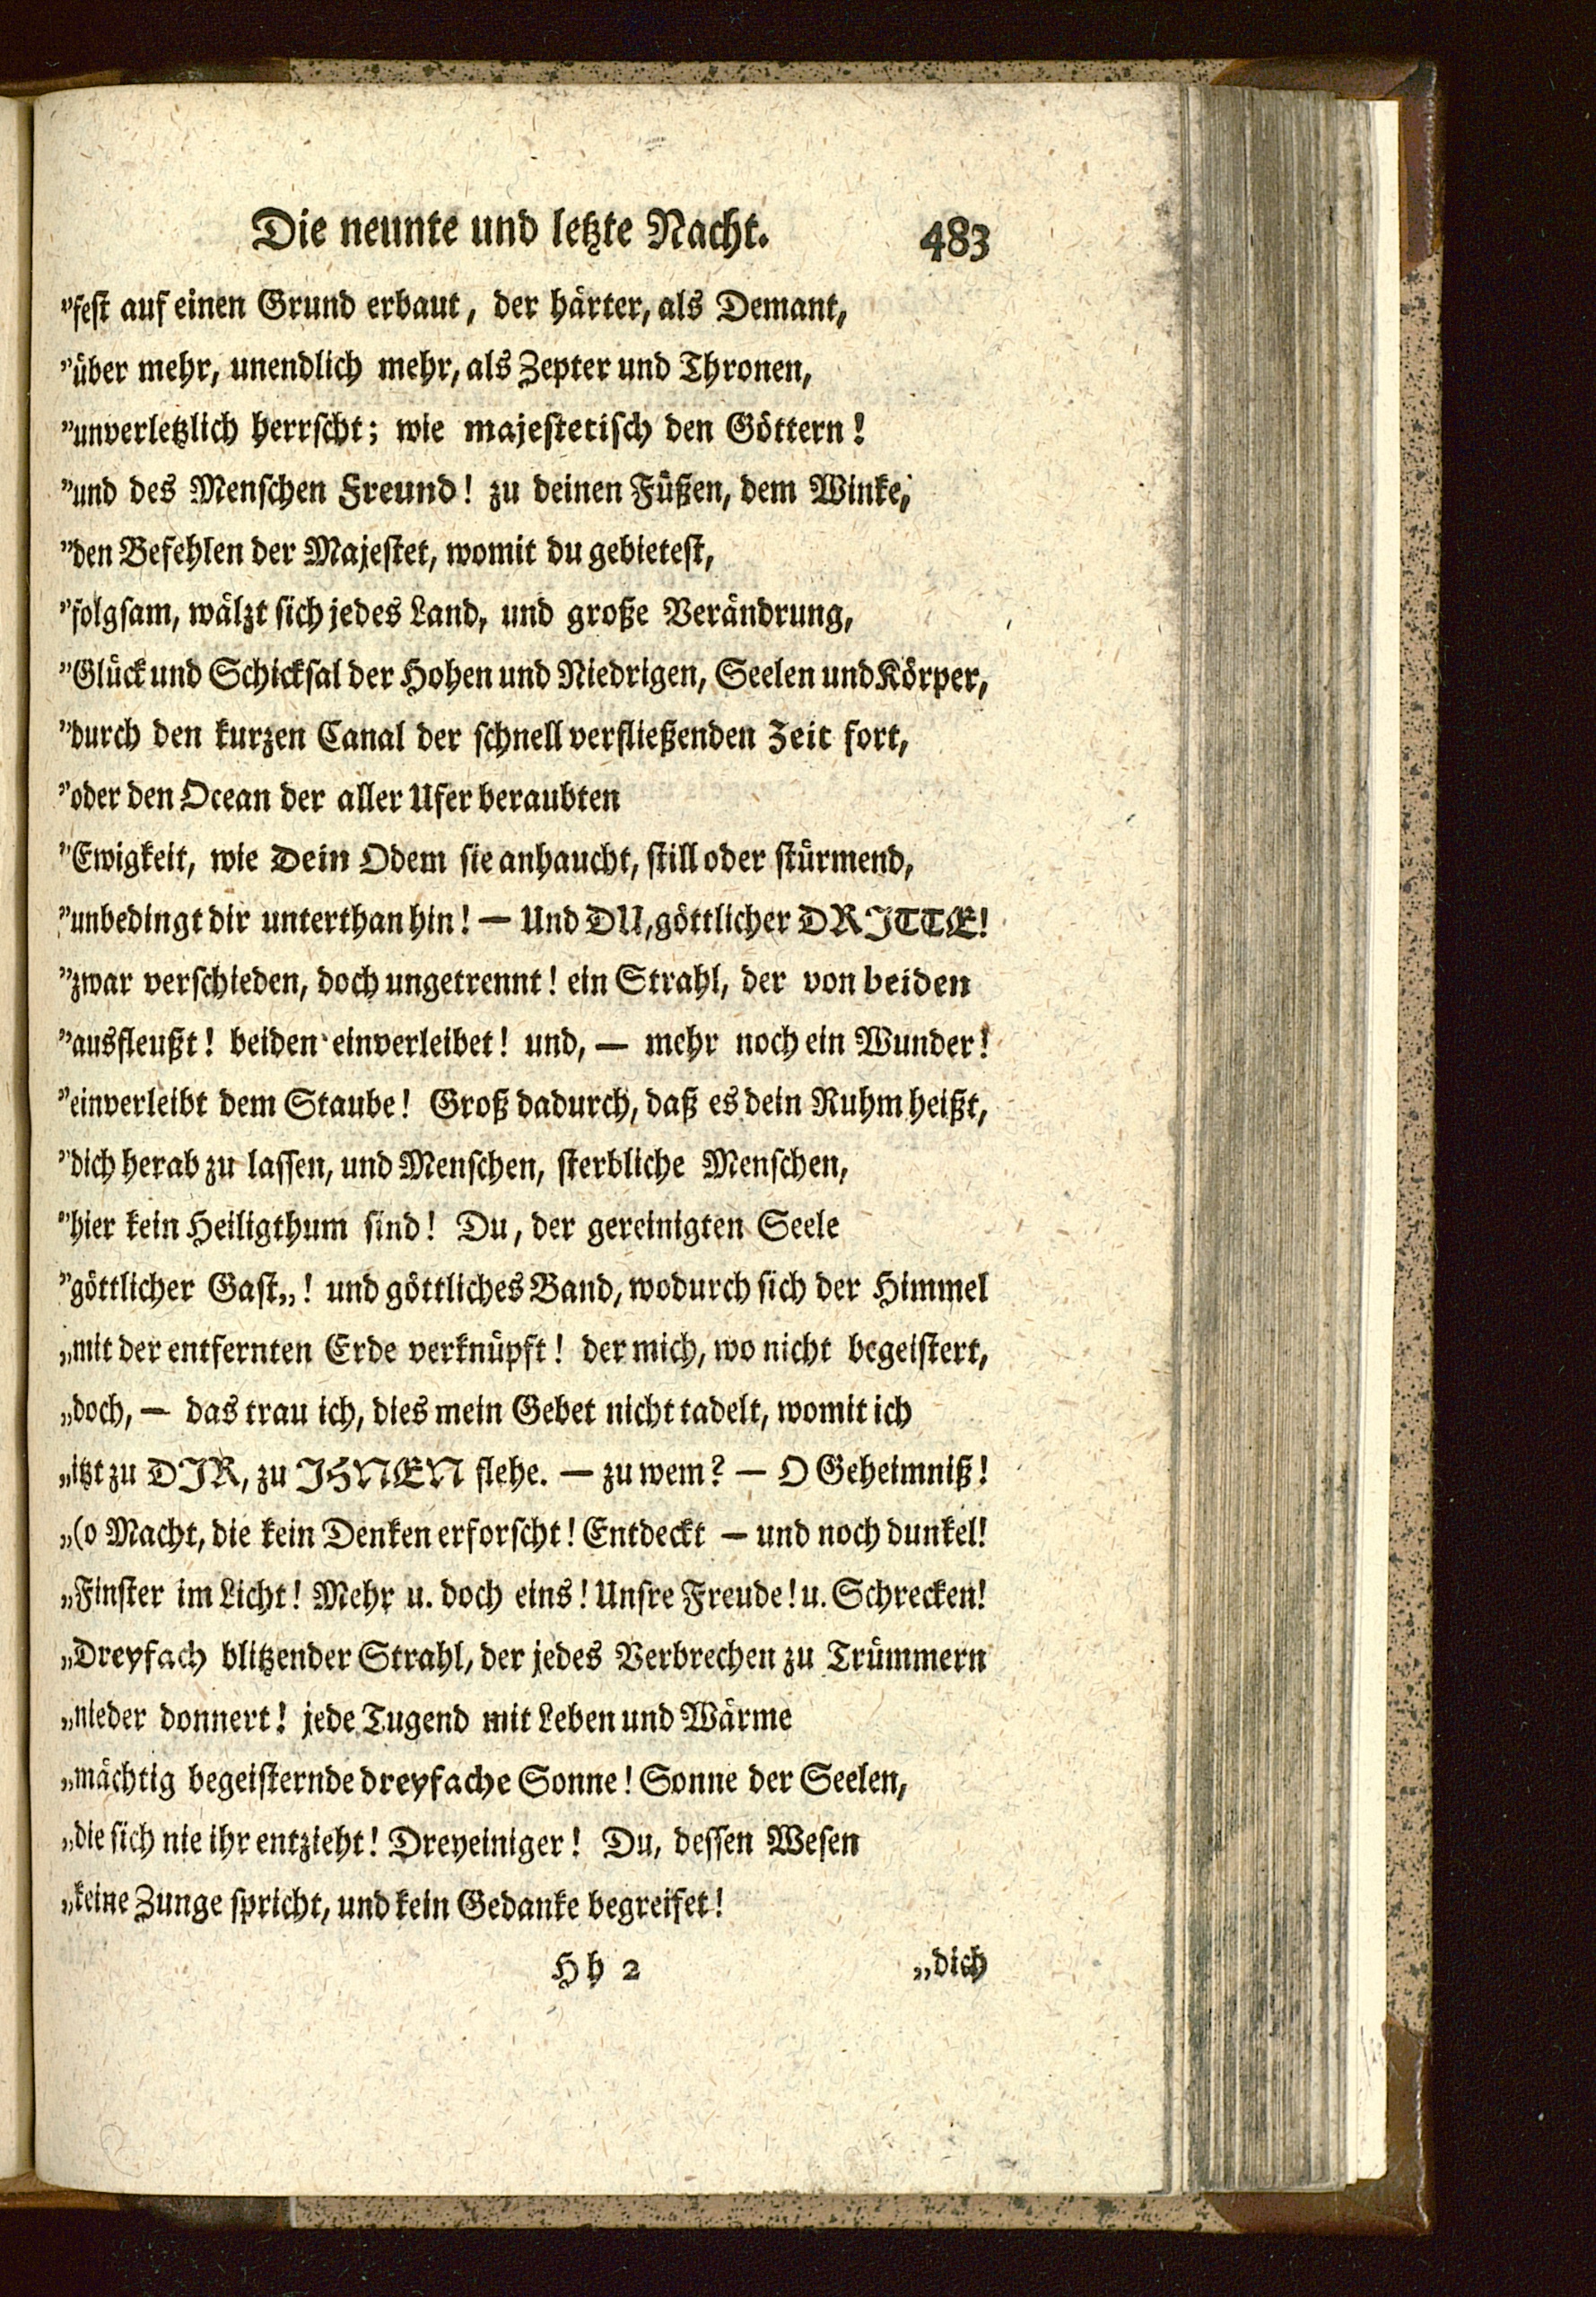 Die neunte und letzte Nacht. 483
”fest auf einen Grund erbaut, der härter, als Demant,
”über mehr, unendlich mehr, als Zepter und Thronen,
”unverletzlich herrscht; wie majestetisch den Göttern!
”und des Menschen Freund! zu deinen Füßen, dem Winke,
”den Befehlen der Majestet, womit du gebietest,
”folgsam, wälzt sich jedes Land, und große Verändrung,
”Glück und Schicksal der Hohen und Niedrigen, Seelen und Körper,
”durch den kurzen Canal der schnell verfließenden Zeit fort,
”oder den Ocean der aller Ufer beraubten
”Ewigkeit, wie Dein Odem sie anhaucht, still oder stürmend,
”unbedingt dir unterthan hin! — Und DU, göttlicher DRITTE!
”zwar verschieden, doch ungetrennt! ein Strahl, der von beiden
”ausfleußt! beiden einverleibet! und, — mehr noch ein Wunder!
”einverleibt dem Staube! Groß dadurch, daß es dein Ruhm heißt,
”dich herab zu lassen, und Menschen, sterbliche Menschen,
”hier kein Heiligthum sind! Du, der gereinigten Seele
”göttlicher Gast„! und göttliches Band, wodurch sich der Himmel
„mit der entfernten Erde verknüpft! der mich, wo nicht begeistert,
„doch, — das trau ich, dies mein Gebet nicht tadelt, womit ich
„itzt zu DIR, zu IHNEN flehe. — zu wem? — O Geheimniß!
„(o Macht, die kein Denken erforscht! Entdeckt — und noch dunkel!
„Finster im Licht! Mehr u. doch eins! Unsre Freude! u. Schrecken!
„Dreyfach blitzender Strahl, der jedes Verbrechen zu Trümmern
„nieder donnert! jede Tugend mit Leben und Wärme
„mächtig begeisternde dreyfache Sonne! Sonne der Seelen,
„die sich nie ihr entzieht! Dreyeiniger! Du, dessen Wesen
„keine Zunge spricht, und kein Gedanke begreifet!
Hh 2 „dich